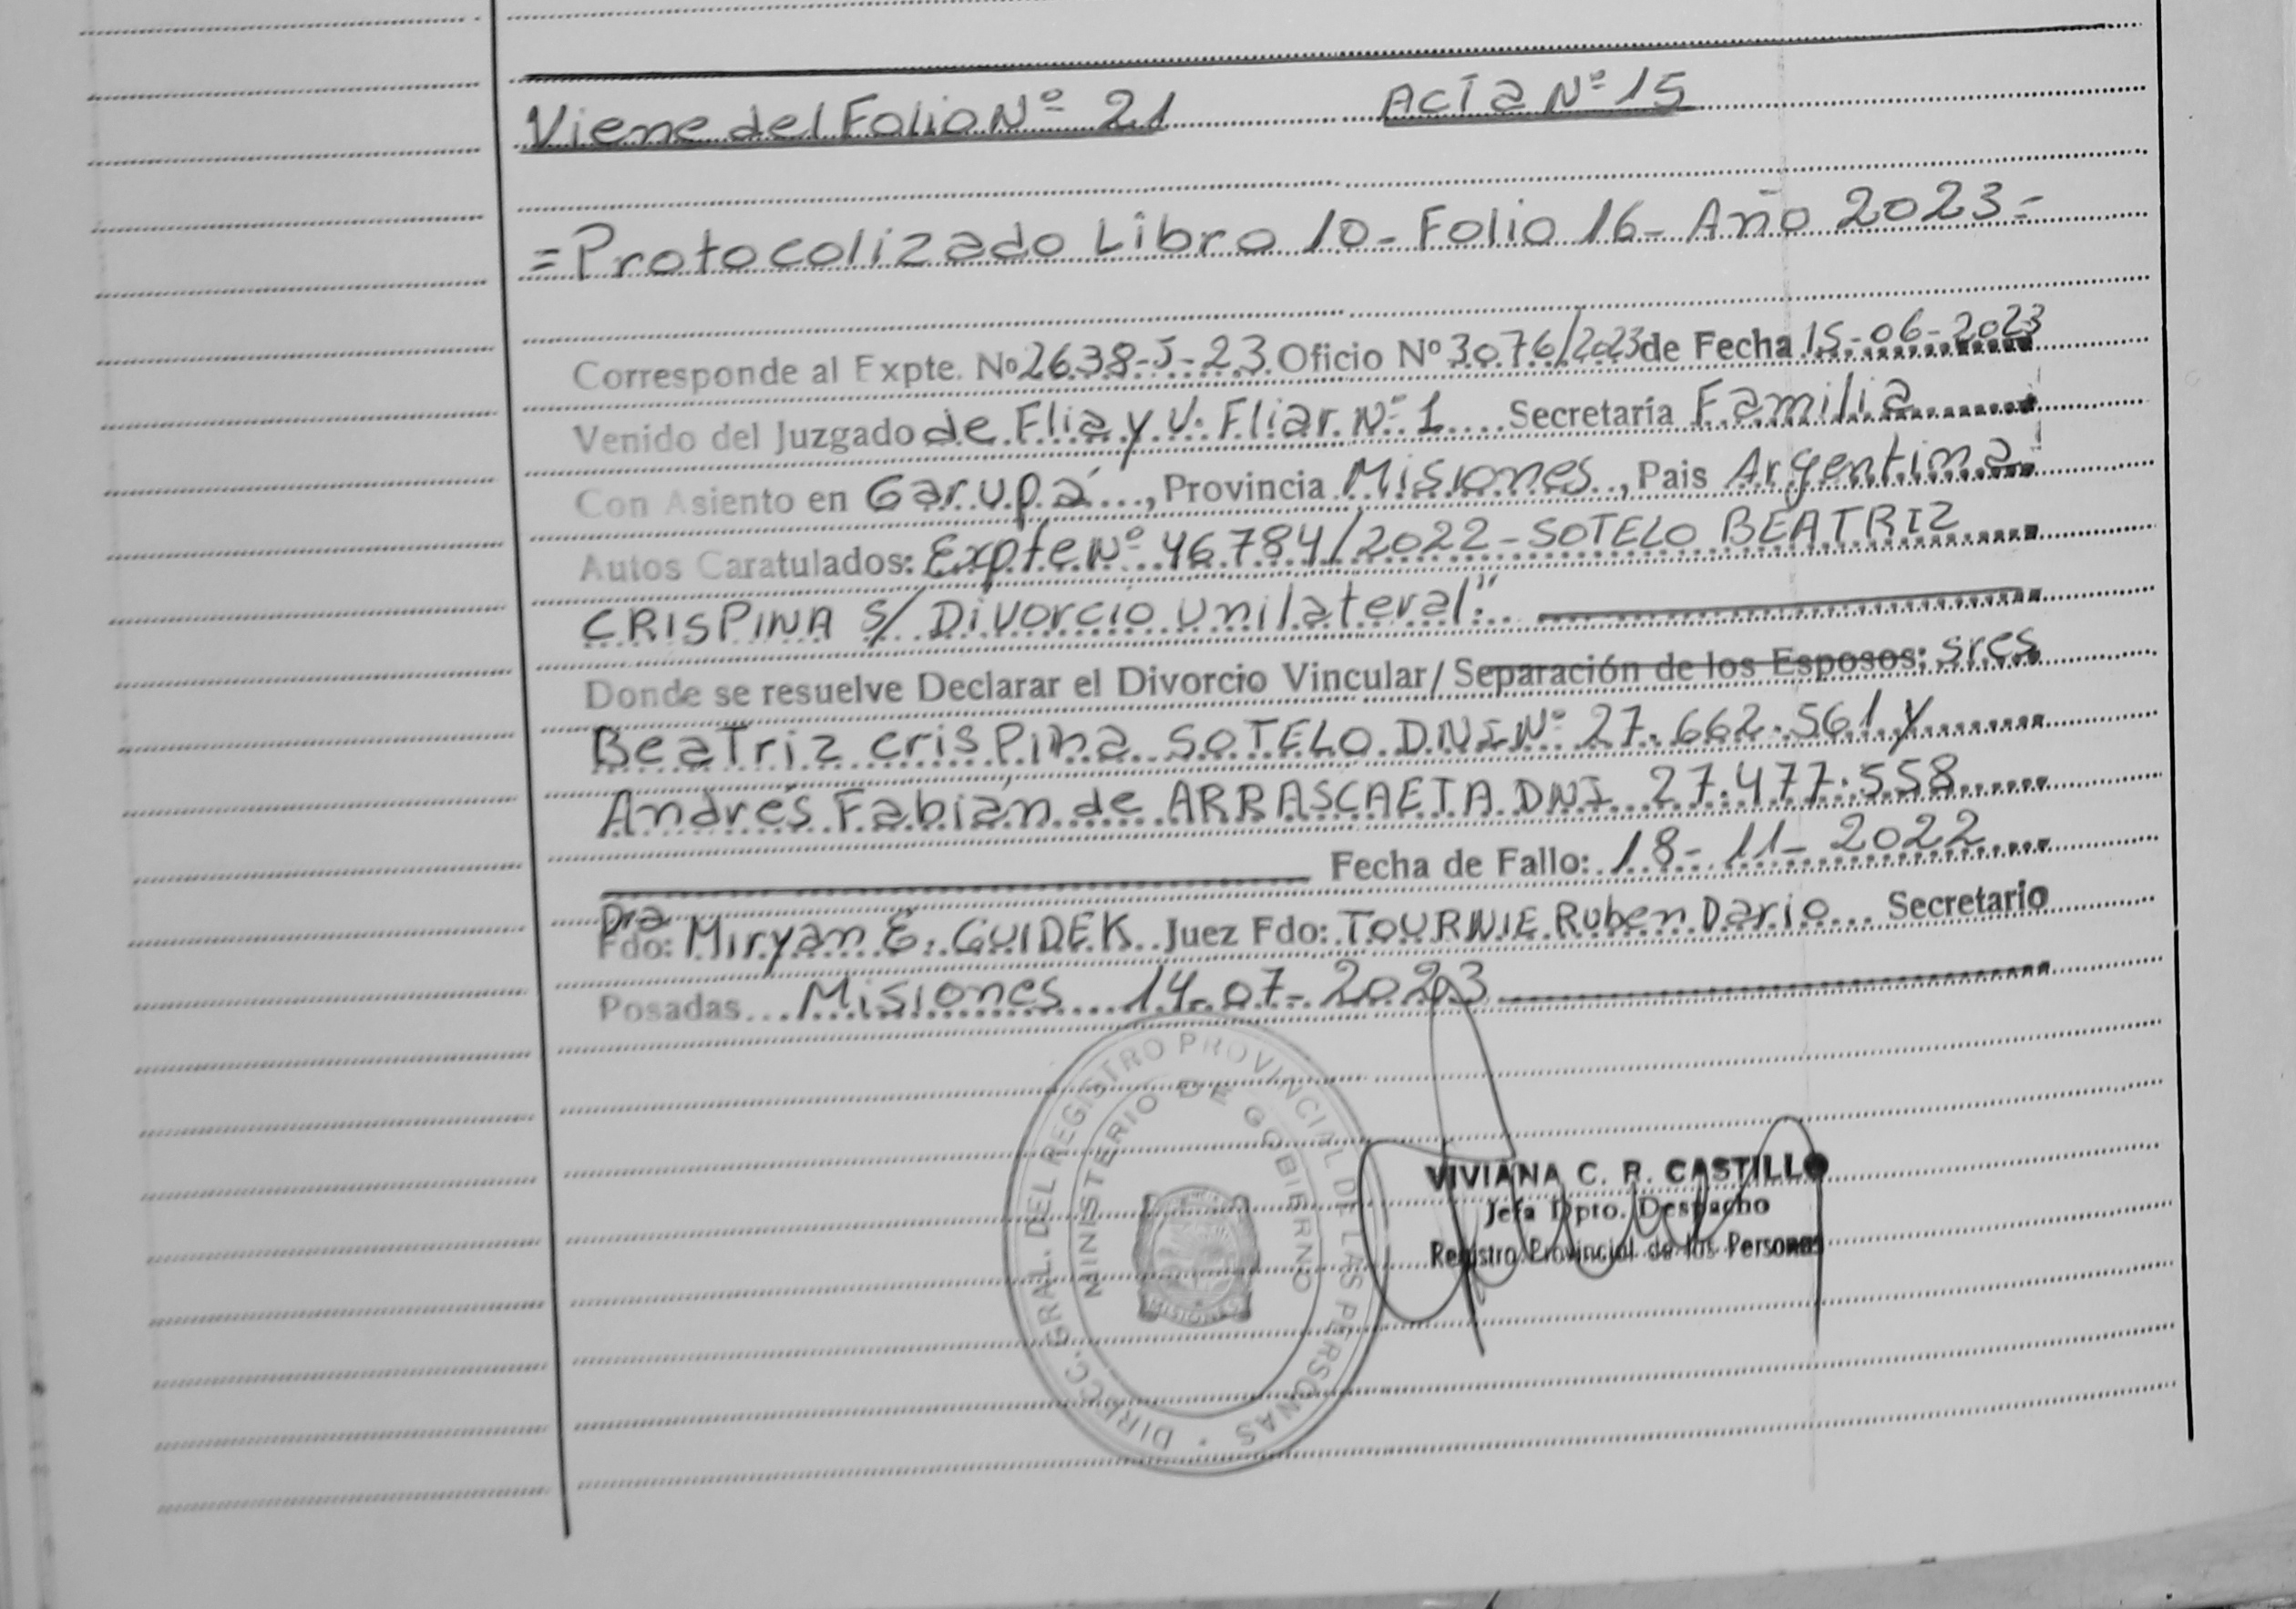 Viene del Folio Nº 21 Acta Nº 15
=Protocolizado Libro 10- Folio 16- Año 2023=
Corresponde al Expte. Nº 2638-J-23 Oficio Nº 3076/2023 de Fecha 15-06-2023
Venido del Juzgado de Flia y V. Fliar. Nº 1 Secretaría Familia
Con Asiento en Garupá, Provincia Misiones, Pais Argentina
Autos Caratulados: Expte Nº 46784/2022-SOTELO BEATRIZ
CRISPINA S/ Divorcio Unilateral"
Donde se resuelve Declarar el Divorcio Vincular/Separación de los Esposos: sres
Beatriz Crispina SOTELO DNI Nº 27.662.561 y
Andrés Fabián de ARRASCAETA DNI 27.477.558
Fecha de Fallo: 18-11-2022
Dra
Fdo: Miryan E. GUIDEK Juez Fdo: TOURNIE Ruben Dario Secretario
Posadas Misiones 14-07-2023
DIRECC. GRAL. DEL REGISTRO PROVINCIAL DE LAS PERSONAS
MINISTERIO DE GOBIERNO
MISIONES
VIVIANA C. R. CASTILLO
Jefa Dpto. Despacho
Registro Provincial de las Personas